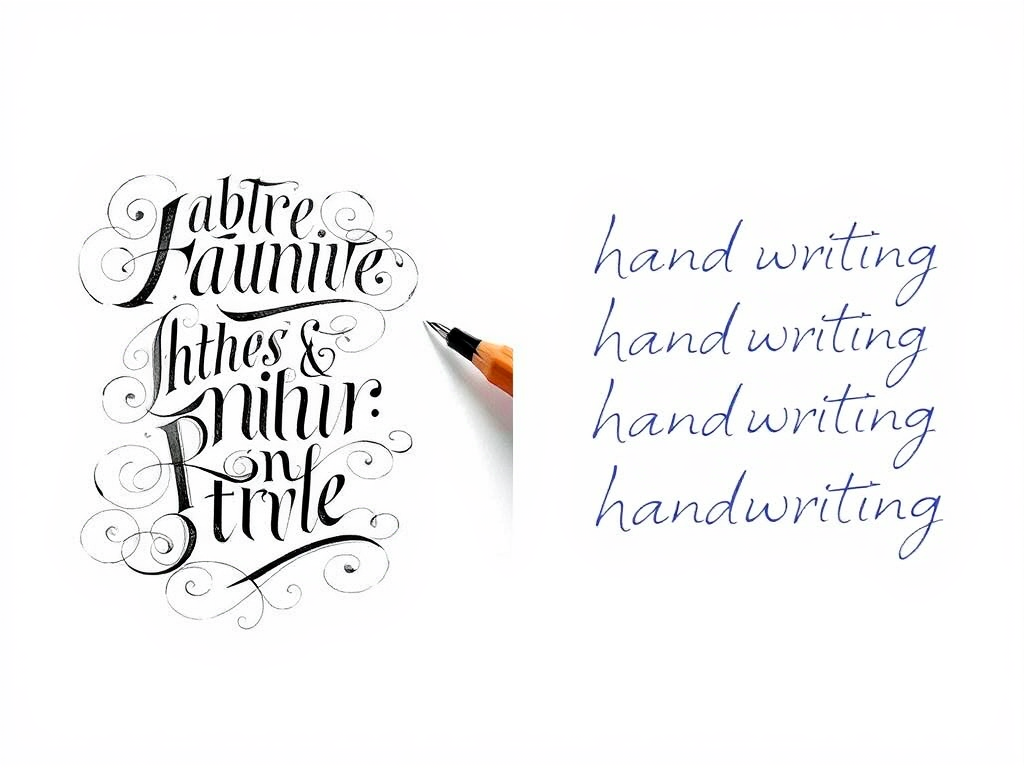 abtre
Faunive
Ihthes &
nihur:
on
trvle
hand writing
hand writing
hand writing
handwriting